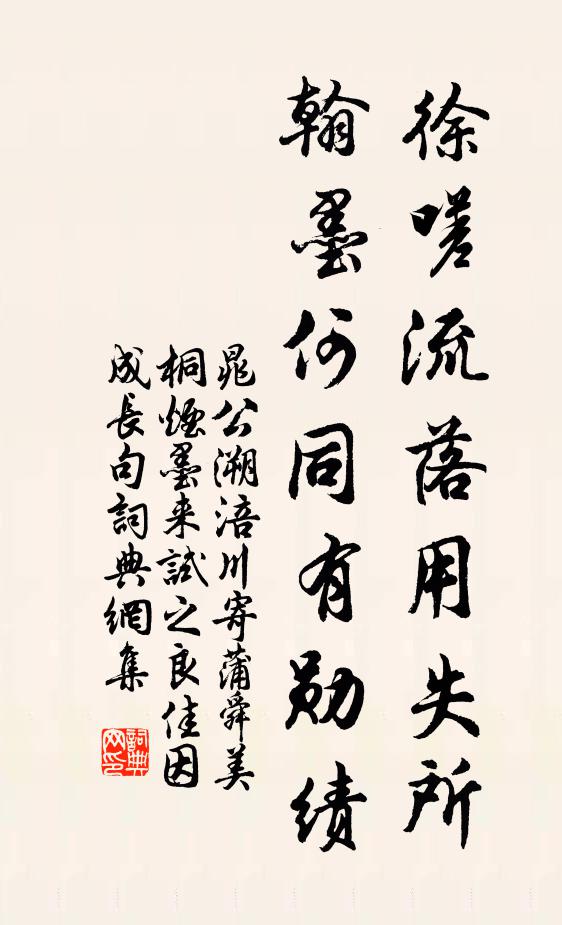 徐嗟流落用失所
翰墨何同有勋绩
晁公溯涪川寄蒲舜美
桐烟墨来试之良佳因
成长句詞典網集
詞典
网印